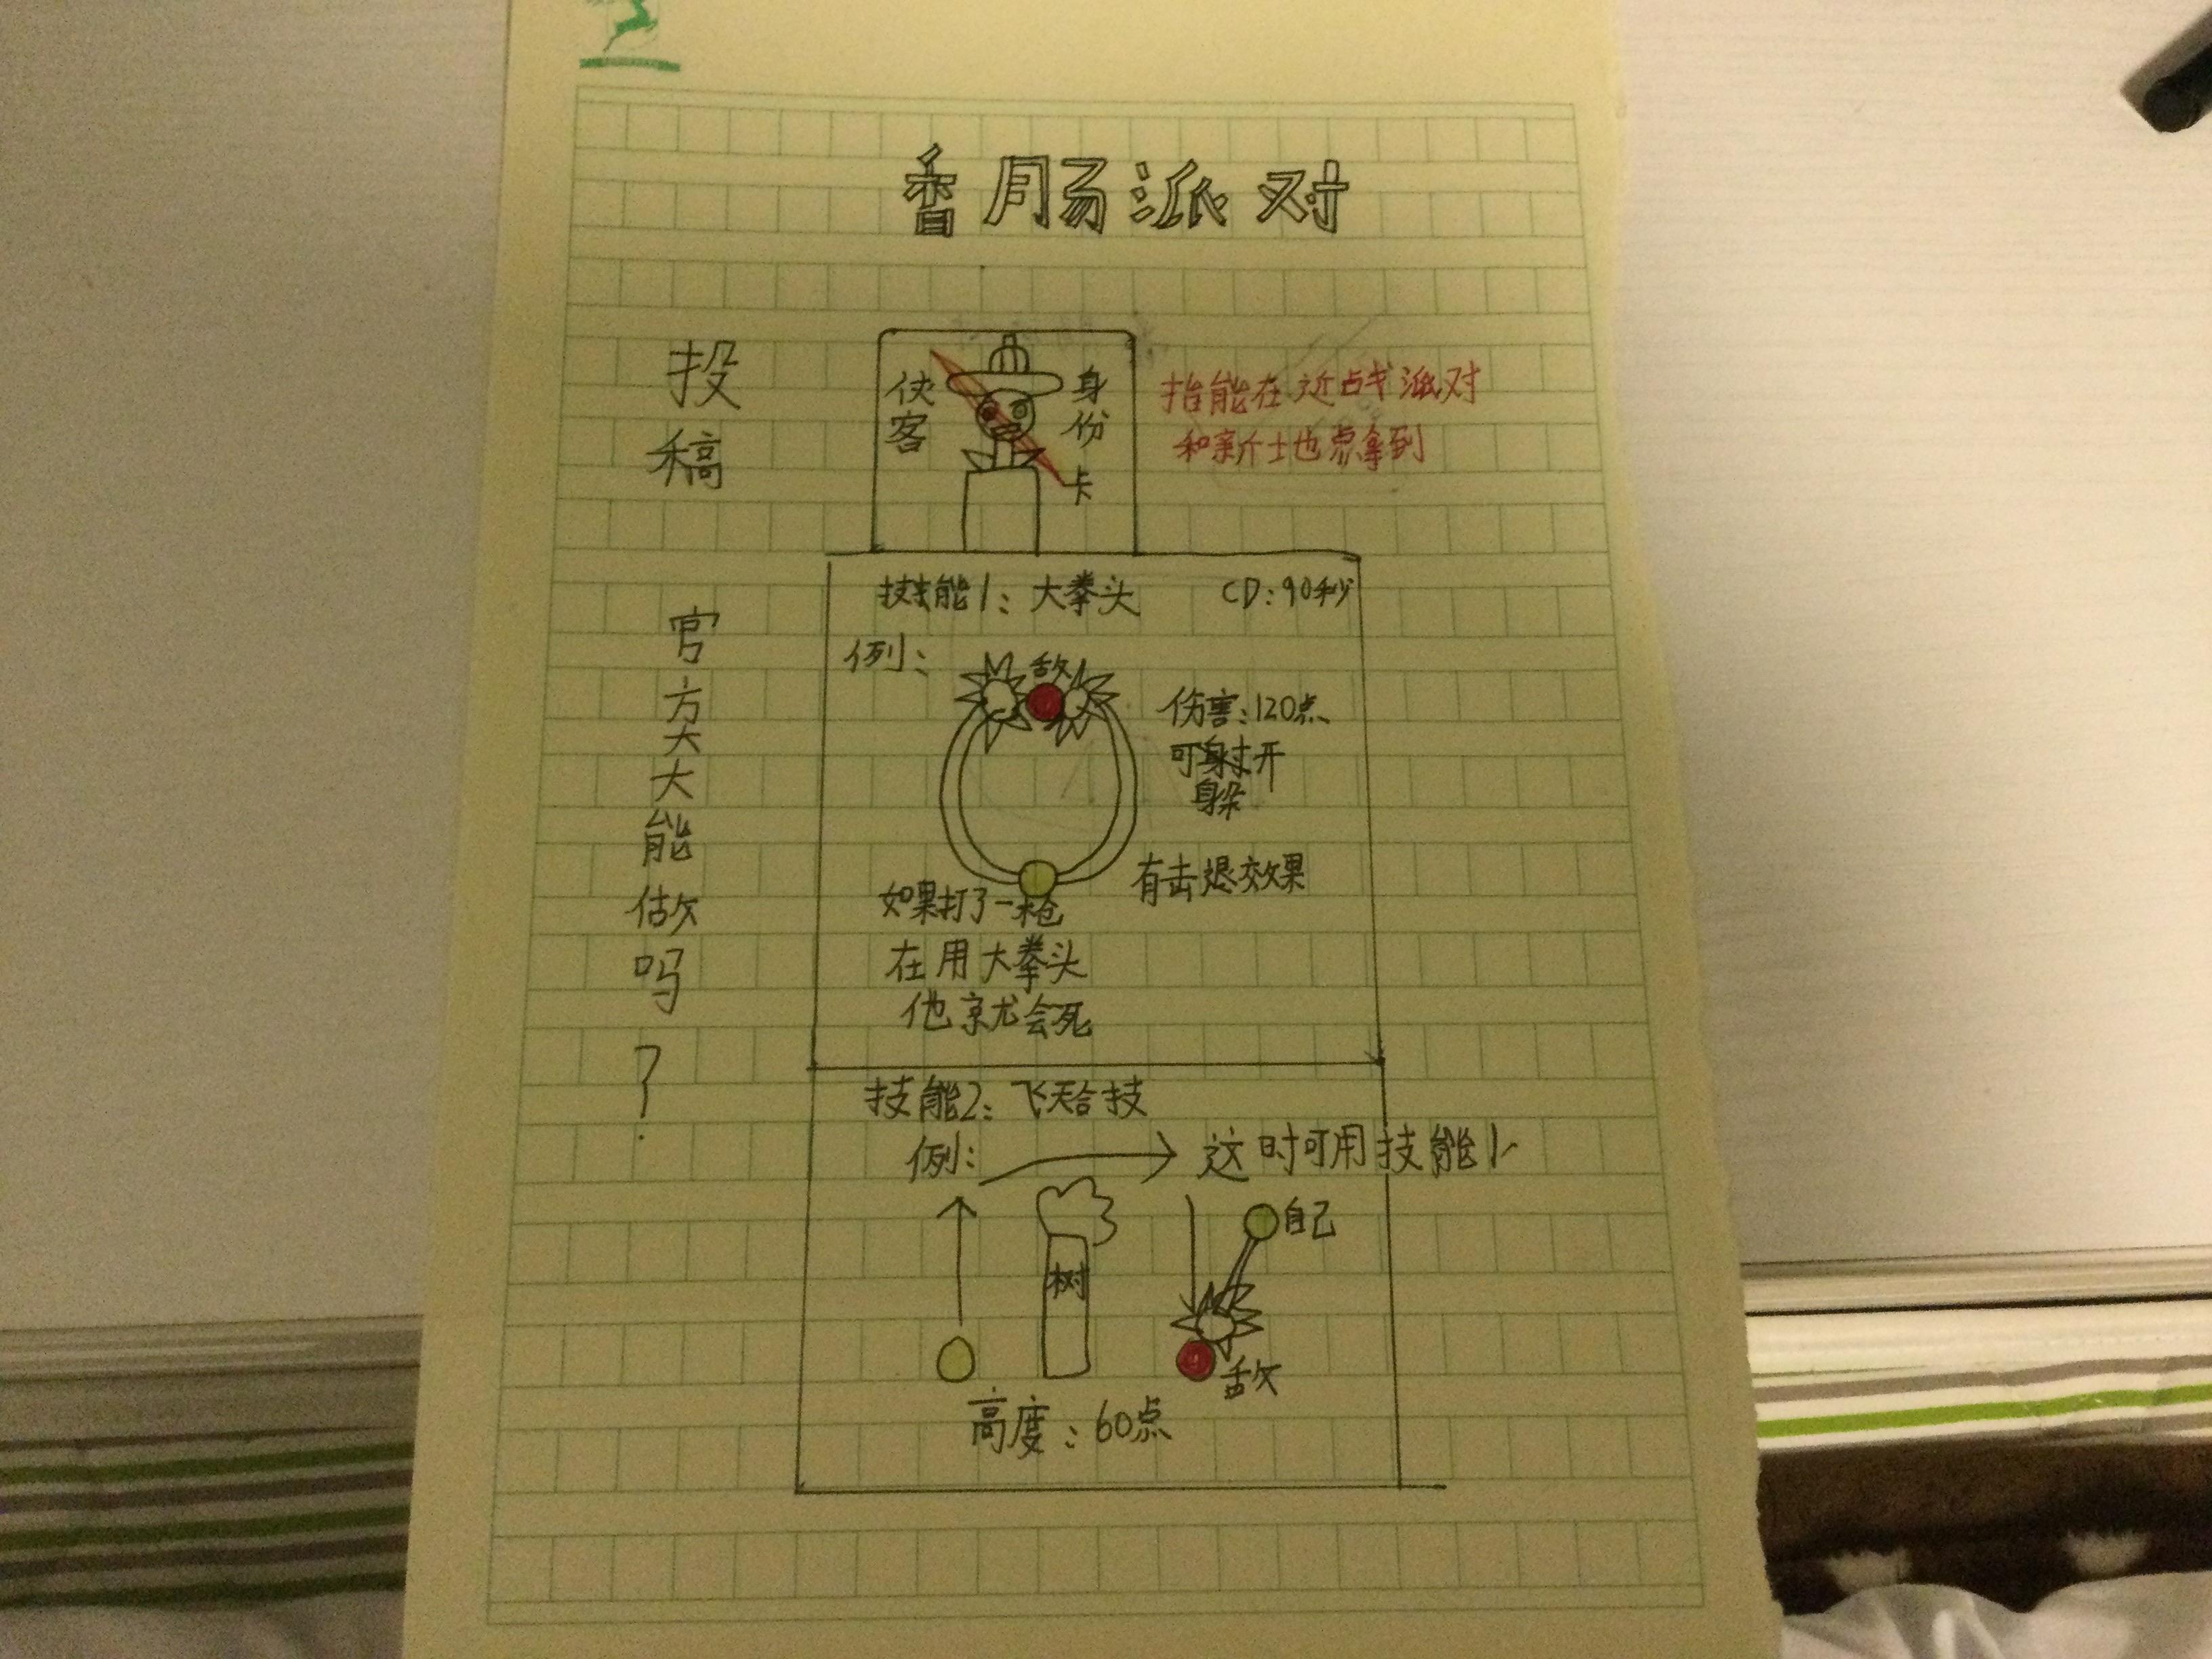 香肠派对
投稿
官方大大能做吗?
侠客
身份卡
抬能在近战派对
和新斤士也点拿到
技能1:大拳头 CD:90秒
例:
敌
伤害:120点
可
开
躲
有击退效果
如果打了一枪
在用大拳头
他就会死
技能2:飞天台技
例:
这时可用技能1
树
自己
敌
高度:60点